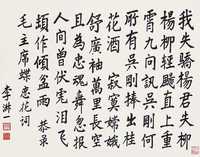 我失驕楊君失柳
楊柳輕颺直上重
霄九問訊吳剛何
所有吳剛捧出桂
花酒 寂寞嫦娥
舒廣袖萬里長空
且為忠魂舞忽報
人間曾伏虎淚飛
頓作傾盆雨 恭录
毛主席蝶恋花词
李淑一